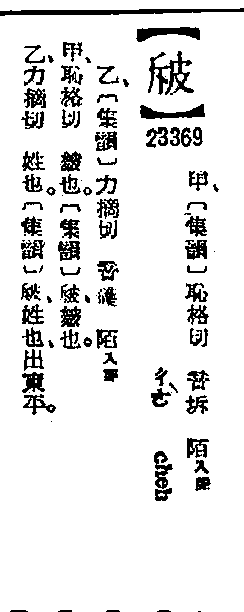 【】
23369
甲、〔集韻〕恥格切 音坼 陌入聲
ㄔㄜˋ cheh
乙、〔集韻〕力摘切 音 陌入聲
甲、恥格切 皺也。〔集韻〕、皺也。
乙、力摘切 姓也。〔集韻〕、姓也、出東平。